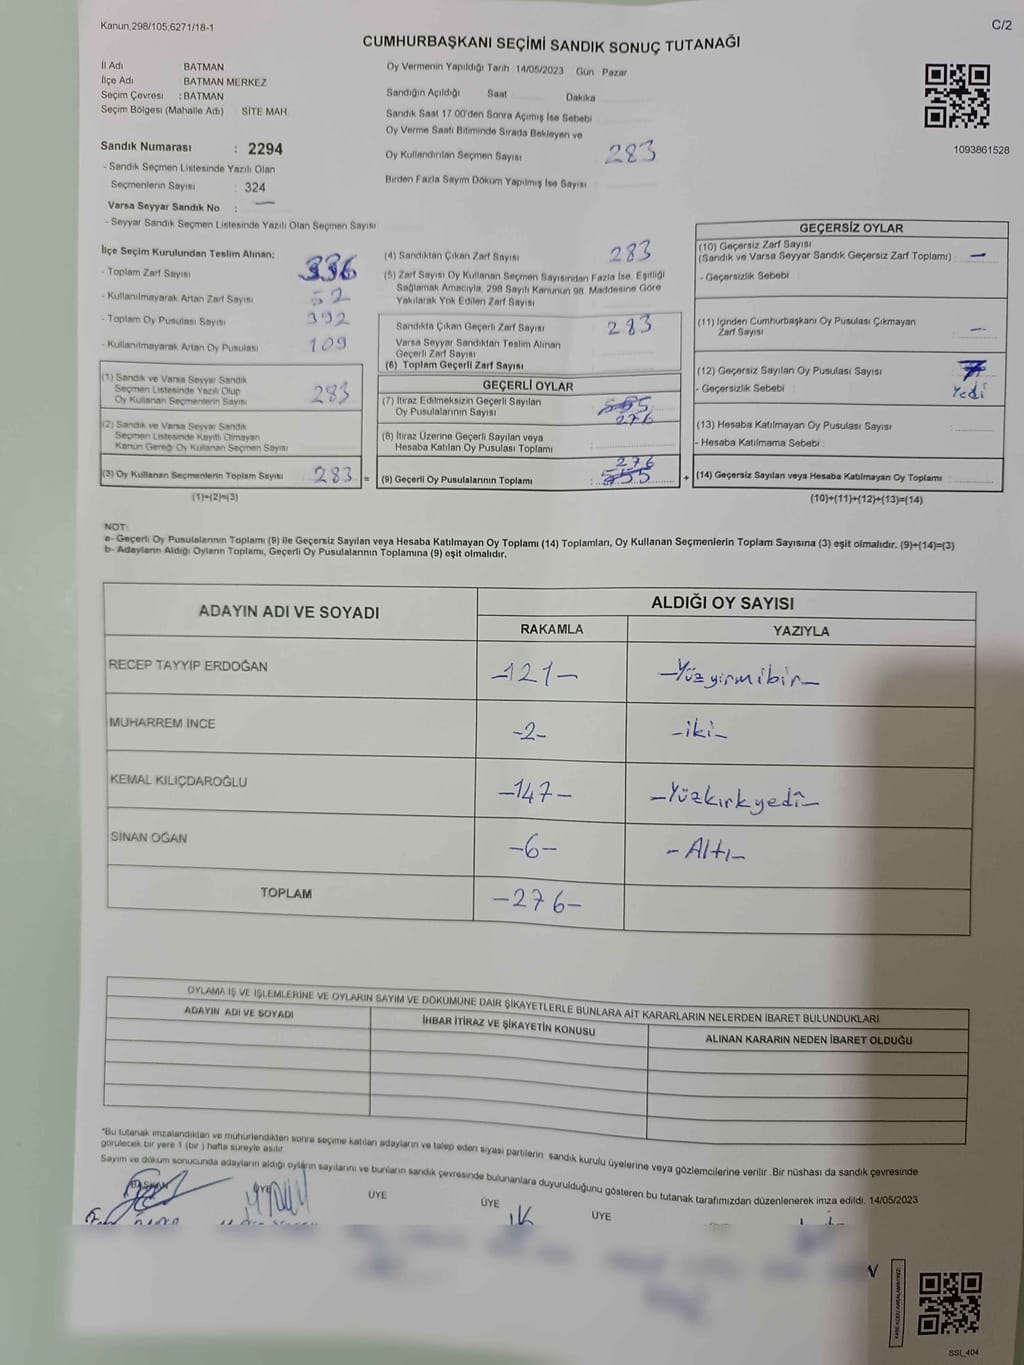 Kanun;298/105;6271/18-1
C/2
CUMHURBAŞKANI SEÇİMİ SANDIK SONUÇ TUTANAĞI
İl Adı : BATMAN
İlçe Adı : BATMAN MERKEZ
Seçim Çevresi : BATMAN
Seçim Bölgesi (Mahalle Adı) SİTE MAH
Sandık Numarası : 2294
- Sandık Seçmen Listesinde Yazılı Olan
Seçmenlerin Sayısı : 324
Varsa Seyyar Sandık No : —
- Seyyar Sandık Seçmen Listesinde Yazılı Olan Seçmen Sayısı
Oy Vermenin Yapıldığı Tarih 14/05/2023 Gün Pazar
Sandığın Açıldığı Saat Dakika
Sandık Saat 17 00'den Sonra Açımış İse Sebebi
Oy Verme Saati Bitiminde Sırada Bekleyen ve
Oy Kullandırılan Seçmen Sayısı 283
Birden Fazla Sayım Döküm Yapılmış İse Sayısı
1093861528
İlçe Seçim Kurulundan Teslim Alınan;
- Toplam Zarf Sayısı 336
- Kullanılmayarak Artan Zarf Sayısı 52
- Toplam Oy Pusulası Sayısı 392
- Kullanılmayarak Artan Oy Pusulası 109
(1) Sandık ve Varsa Seyyar Sandık
Seçmen Listesinde Yazılı Olup
Oy Kullanan Seçmenlerin Sayısı 283
(2) Sandık ve Varsa Seyyar Sandık
Seçmen Listesinde Kayıtlı Olmayan
Kanun Gereği Oy Kullanan Seçmen Sayısı
(3) Oy Kullanan Seçmenlerin Toplam Sayısı 283 =
(1)+(2)=(3)
(4) Sandıktan Çıkan Zarf Sayısı 283
(5) Zarf Sayısı Oy Kullanan Seçmen Sayısından Fazla İse, Eşitliği
Sağlamak Amacıyla, 298 Sayılı Kanunun 98. Maddesine Göre
Yakılarak Yok Edilen Zarf Sayısı
Sandıkta Çıkan Geçerli Zarf Sayısı 283
Varsa Seyyar Sandıktan Teslim Alınan
Geçerli Zarf Sayısı
(6) Toplam Geçerli Zarf Sayısı
GEÇERLİ OYLAR
(7) İtiraz Edilmeksizin Geçerli Sayılan
Oy Pusulalarının Sayısı 555
276
(8) İtiraz Üzerine Geçerli Sayılan veya
Hesaba Katılan Oy Pusulası Toplamı
276
(9) Geçerli Oy Pusulalarının Toplamı : 555 +
GEÇERSİZ OYLAR
(10) Geçersiz Zarf Sayısı
(Sandık ve Varsa Seyyar Sandık Geçersiz Zarf Toplamı) : —
- Geçersizlik Sebebi
(11) İçinden Cumhurbaşkanı Oy Pusulası Çıkmayan
Zarf Sayısı —
(12) Geçersiz Sayılan Oy Pusulası Sayısı 7
- Geçersizlik Sebebi : Yedi
(13) Hesaba Katılmayan Oy Pusulası Sayısı
- Hesaba Katılmama Sebebi
(14) Geçersiz Sayılan veya Hesaba Katılmayan Oy Toplamı
(10)+(11)+(12)+(13)=(14)
NOT:
a- Geçerli Oy Pusulalarının Toplamı (9) ile Geçersiz Sayılan veya Hesaba Katılmayan Oy Toplamı (14) Toplamları, Oy Kullanan Seçmenlerin Toplam Sayısına (3) eşit olmalıdır. (9)+(14)=(3)
b- Adayların Aldığı Oyların Toplamı, Geçerli Oy Pusulalarının Toplamına (9) eşit olmalıdır.
ADAYIN ADI VE SOYADI ALDIĞI OY SAYISI
RAKAMLA YAZIYLA
RECEP TAYYİP ERDOĞAN -121- -Yüzyirmibir-
MUHARREM İNCE -2- -iki-
KEMAL KILIÇDAROĞLU -147- -Yüzkırkyedi-
SİNAN OĞAN -6- -Altı-
TOPLAM -276-
OYLAMA İŞ VE İŞLEMLERİNE VE OYLARIN SAYIM VE DÖKÜMÜNE DAİR ŞİKAYETLERLE BUNLARA AİT KARARLARIN NELERDEN İBARET BULUNDUKLARI
ADAYIN ADI VE SOYADI İHBAR İTİRAZ VE ŞİKAYETİN KONUSU ALINAN KARARIN NEDEN İBARET OLDUĞU
*Bu tutanak imzalandıktan ve mühürlendikten sonra seçime katılan adayların ve talep eden siyasi partilerin sandık kurulu üyelerine veya gözlemcilerine verilir .Bir nüshası da sandık çevresinde
görülecek bir yere 1 (bir ) hafta süreyle asılır
Sayım ve döküm sonucunda adayların aldığı oyların sayılarını ve bunların sandık çevresinde bulunanlara duyurulduğunu gösteren bu tutanak tarafımızdan düzenlenerek imza edildi. 14/05/2023
BAŞKAN ÜYE ÜYE ÜYE ÜYE
SSI_404